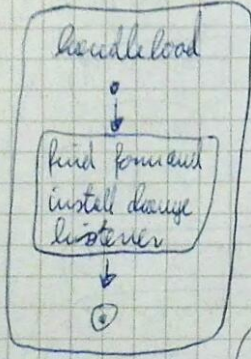 handleload
find form and
install change
listener